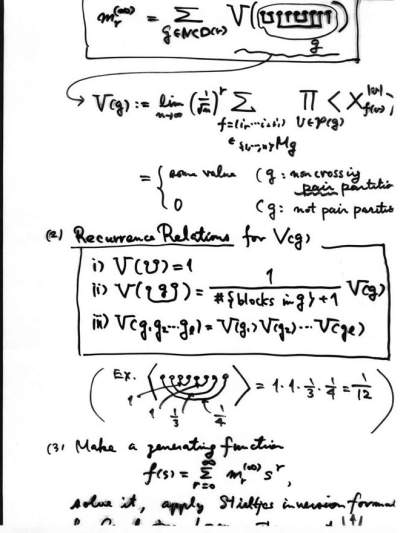 m_r^(∞) = Σ_{g∈NCD(r)} V( )
g
V(g) := lim_{n→∞} (1/√n)^r Σ_{f=(i,…,i)∈{1,…,n}} Π_{U∈P(g)} < X_{f(U)}^{|U|}
M_g
= { some value (g: noncrossing pair partitio
0 (g: not pair partitio
(2) Recurrence Relations for V(g)
i) V( ) = 1
ii) V( g ) = 1 / #{blocks in g}+1 V(g)
iii) V(g₁g₂…g_ℓ) = V(g₁)V(g₂)…V(g_ℓ)
( Ex. < > = 1·1·1/3·1/4 = 1/12 )
1 1 1/3 1/4
(3) Make a generating function
f(s) = Σ_{r=0}^∞ m_r^(∞) s^r,
solve it, apply Stieltjes inversion formul